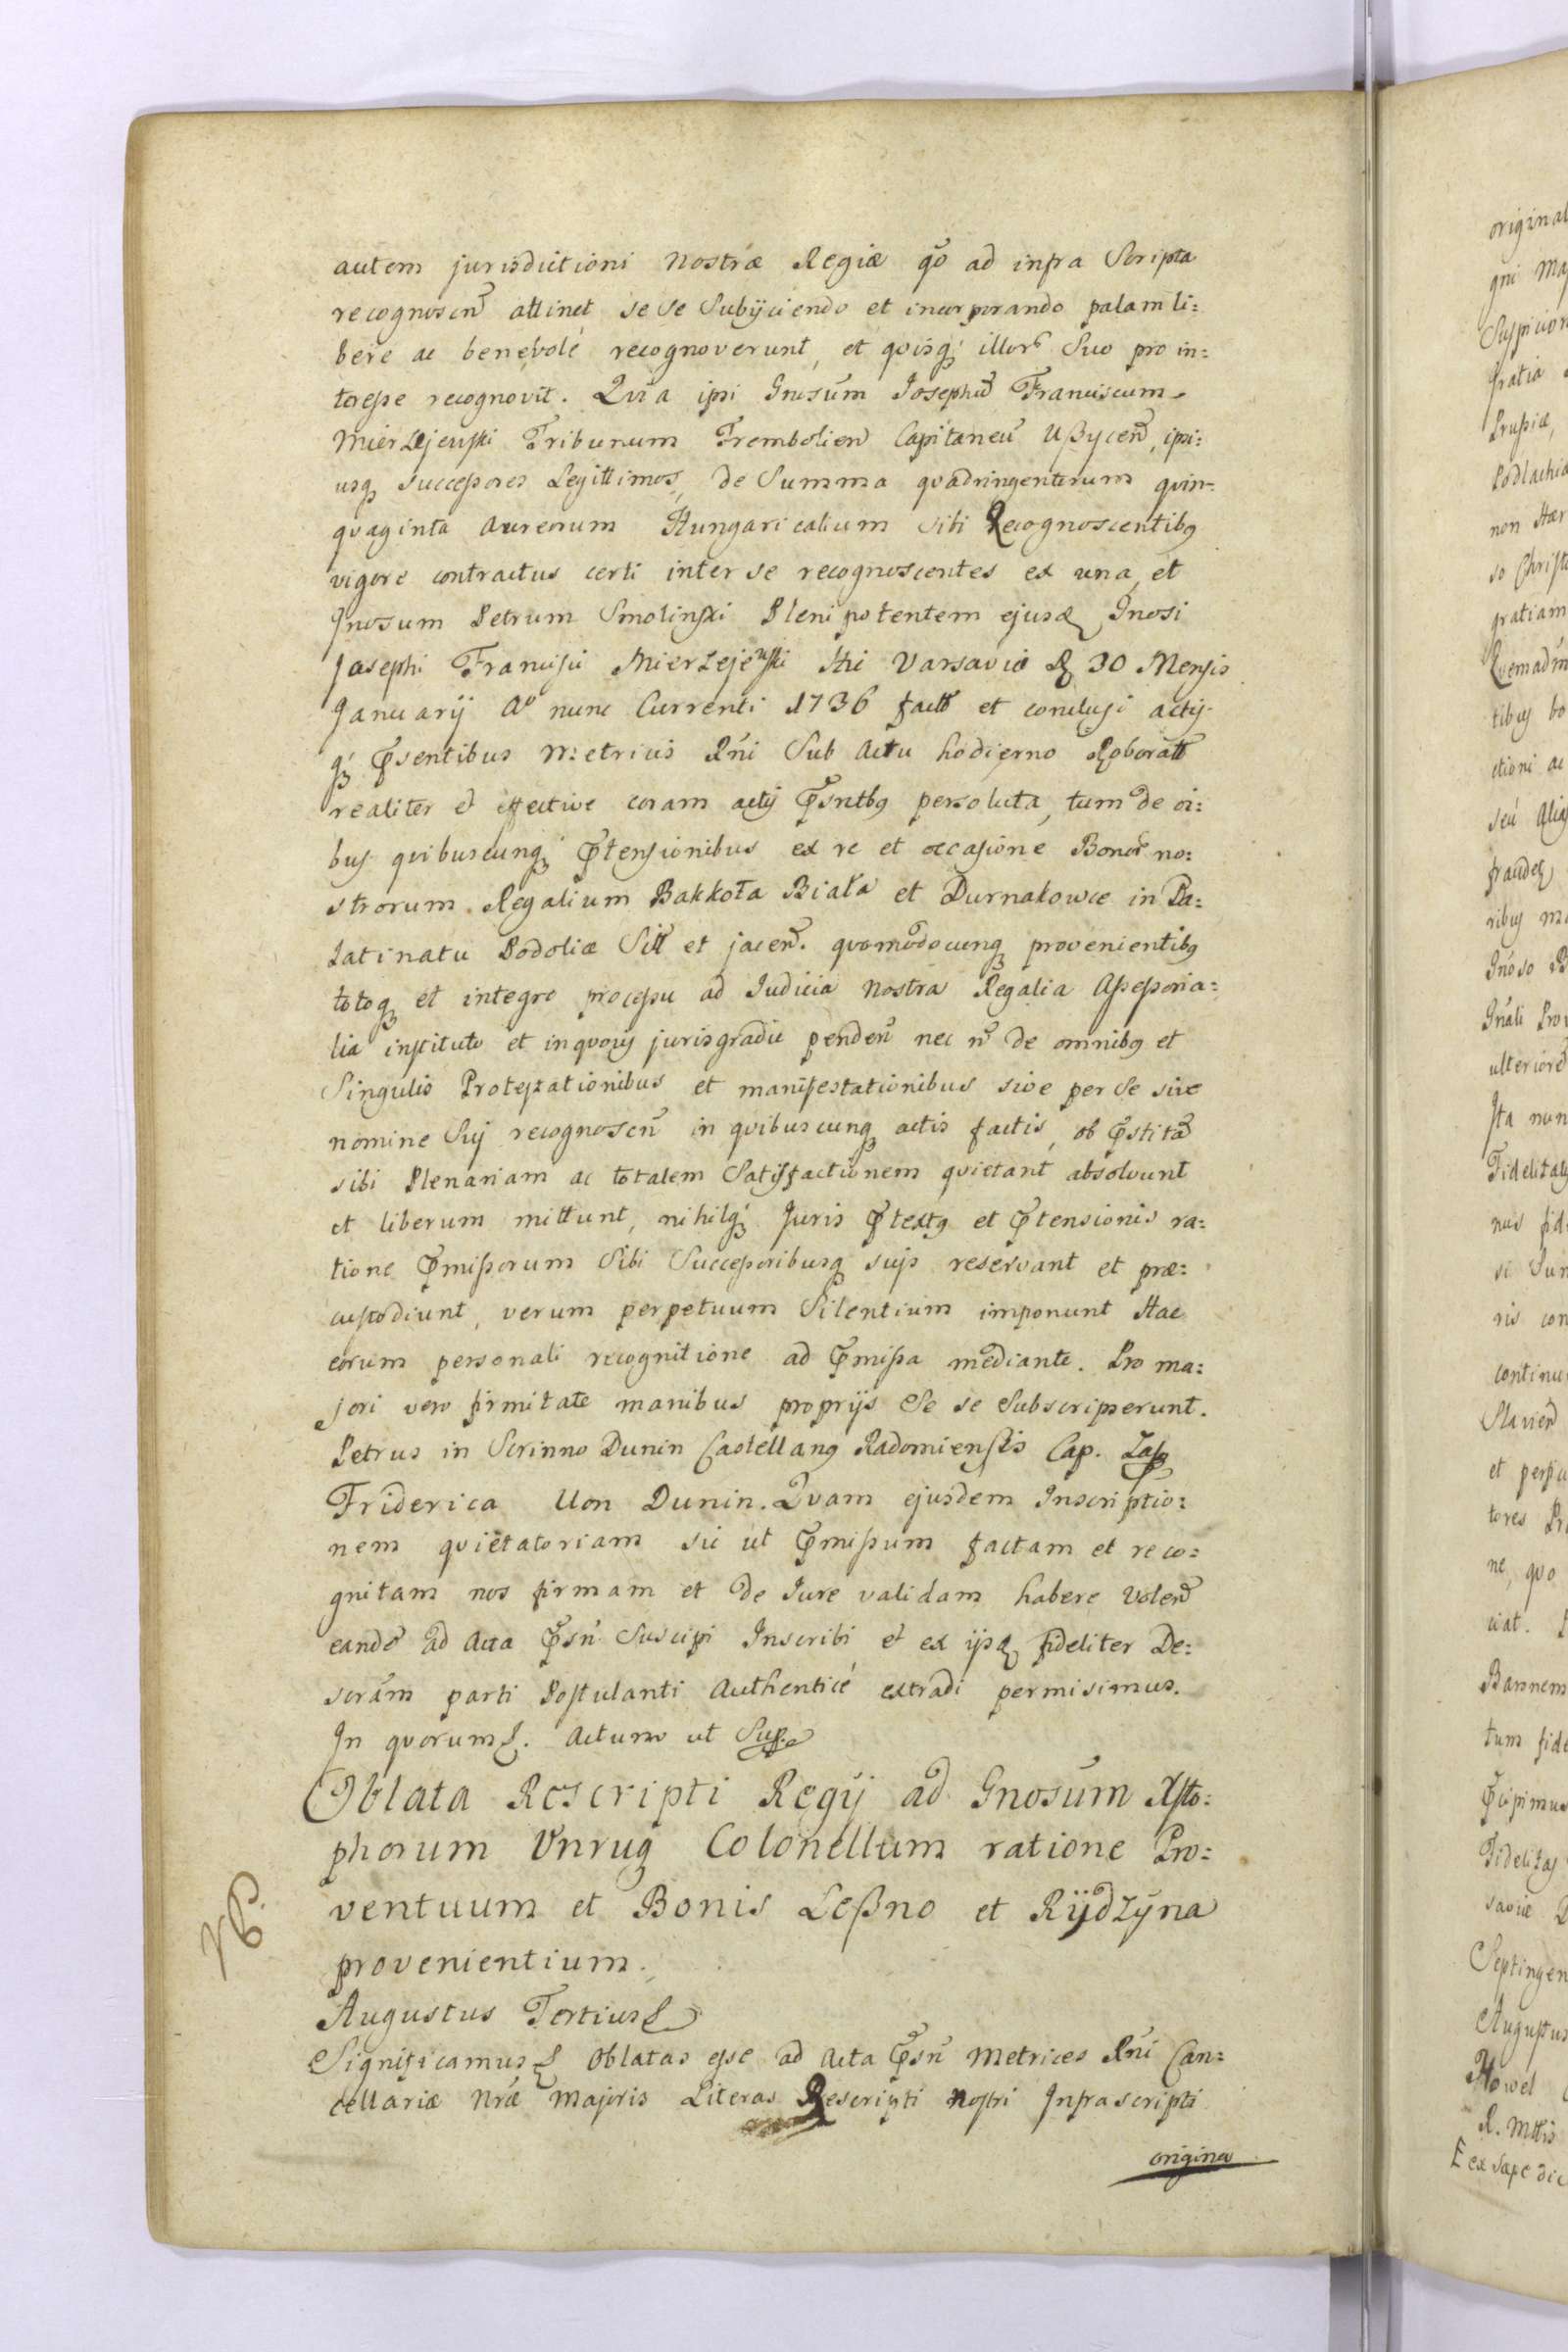 autem jurisdictioni Nostræ Regiæ qō ad infra Scripta
recognoscñ attinet se se Subijciendo et incorporando palam li:
bere ac benevolé recognoverunt, et quisq; illor Suo pro in:
teresse recognovit. Quia ipsi Gnosum Josephũ Franciscum
Mierzejewski Tribunum Trembolien Capitaneũ Ußycen, ipsi:
usq; successores Legittimos, de Summa quadringentorum quin:
quaginta Aureorum Hungaricalium Sibi Recognoscentibq
vigore contractus certi inter se recognoscentes ex una, et
Gnosum Petrum Smolinski Plenipotentem ejusd Gnosi
Josephi Francisci Mierzejewski Hic Varsaviæ D 30 Mensis
Januarij Aº nunc Currenti 1736 fact et conclusi actis
q; Psentibus Metricis Rńi Sub Actu hodierno Roborat
realiter et effective coram actis Psntbq persoluta, tum de oi:
bus quibuscunq; Ptensionibus ex re et occasione Bonor no:
strorum Regalium Bakkota Biała et Durnakowce in Pa:
latinatu Podoliæ Sitt et jacen. quomodocunq; provenientibq
totoq; et integro processu ad Judicia Nostra Regalia Assessoria:
lia instituto et in quovis juris gradu penden nec ñ de omnibq et
Singulis Protestationibus et manifestationibus sive per Se sive
nomine Sui recognoscñ in quibuscunq; actis factis, ob Pstitã
sibi Plenariam ac totalem Satisfactionem quietant absolvunt
et liberum mittunt, nihilq; Juris Ptextq et Ptensionis ra:
tione Pmissorum Sibi Successoribusq; suis reservant et præ:
custodiunt, verum perpetuum Silentium imponunt Hac
eorum personali recognitione ad Pmissa mediante. Pro ma:
jori vero firmitate manibus proprijs Se se Subscripserunt.
Petrus in Scrinno Dunin Castellanq Radomiensis Cap. Zas
Friderica Von Dunin. Quam ejusdem Inscriptio:
nem quietatoriam sic ut Pmissum factam et reco:
gnitam nos firmam et de Jure validam habere Volen
eandẽ ad Acta Psñ Suscipi Inscribi et ex ijsd fideliter De:
scrām parti Postulanti Authenticé extradi permisimus.
In quorum. Actum ut Sup
Oblata Rescripti Regij ad Gnosum Xsto:
phorum Unrug Colonellum ratione Pro:
ventuum et Bonis Leßno et Rÿdzyna
provenientium.
NB.
Augustus Tertius
Significamus Oblatas esse ad Acta Psñ Metrices Rńi Can:
cellariæ Nrǽ Majoris Literas Rescripti Nostri Infrascripti
origina